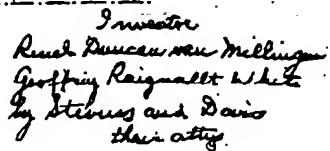 Inventors
Duncan van Millingen
Geoffrey Reignallt White
by Stevens and Davis
their attys